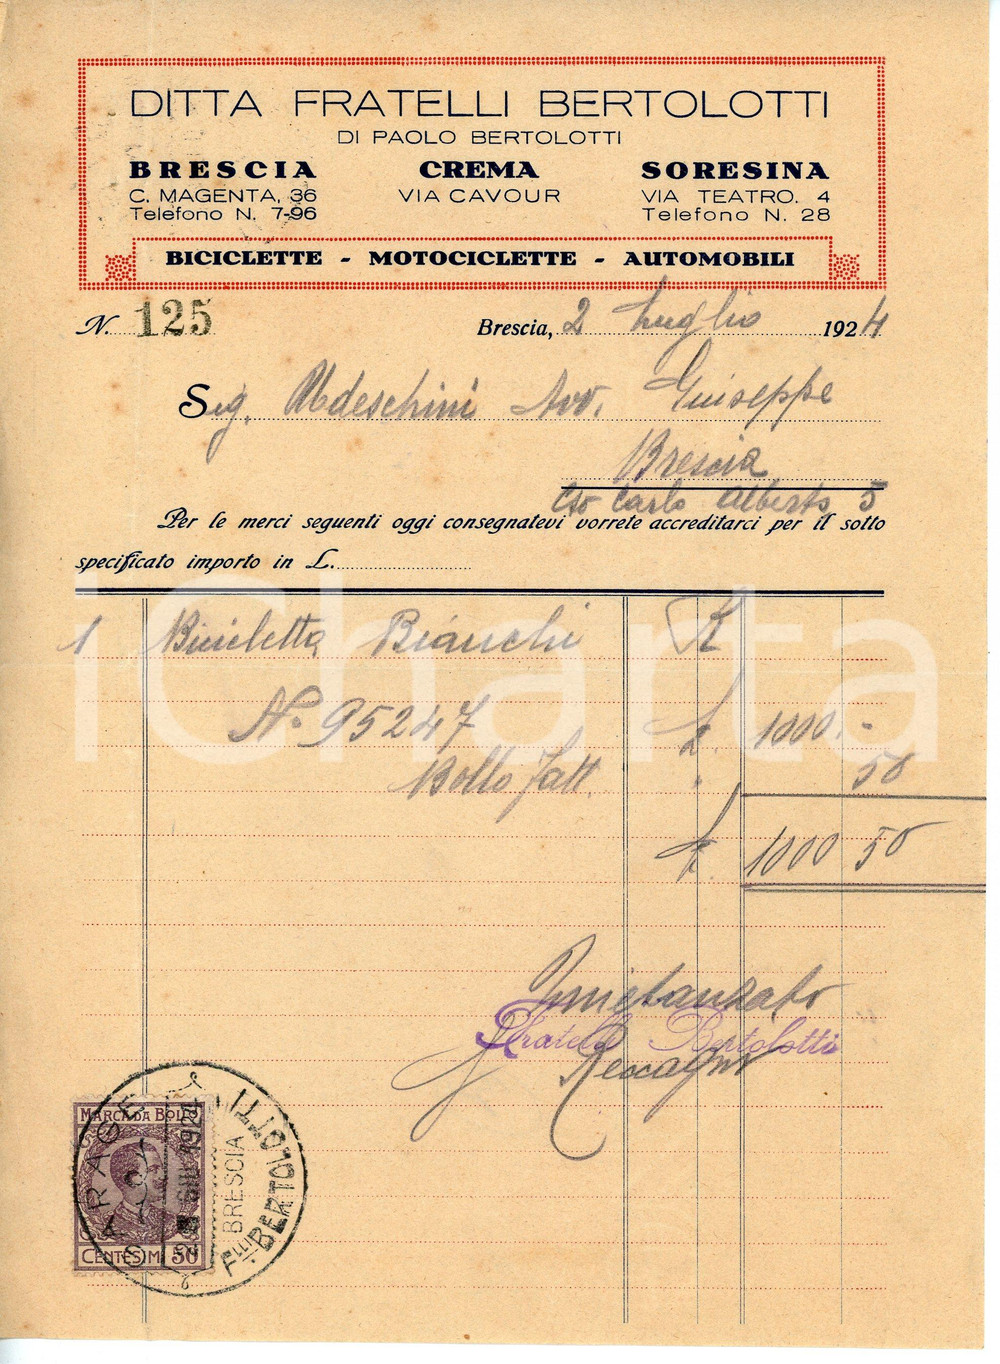 DITTA FRATELLI BERTOLOTTI
DI PAOLO BERTOLOTTI
BRESCIA CREMA SORESINA
C. MAGENTA, 36 VIA CAVOUR VIA TEATRO. 4
Telefono N. 7-96 Telefono N. 28
BICICLETTE - MOTOCICLETTE - AUTOMOBILI
N. 125 Brescia, 2 Luglio 1924
Sig. Avv. Giuseppe
Brescia
Cso Carlo Alberto 5
Per le merci seguenti oggi consegnatevi vorrete accreditarci per il sotto
specificato importo in L.
iCharta
1 Bicicletta Bianchi
N. 95247 £. 1000.-
Bollo Fatt. " 50
£. 1000 50
Quietanzato
Fratelli Bertolotti
MARCA DA BOLLO
CENTESIMI 50
GARAGE
F.lli BERTOLOTTI
BRESCIA